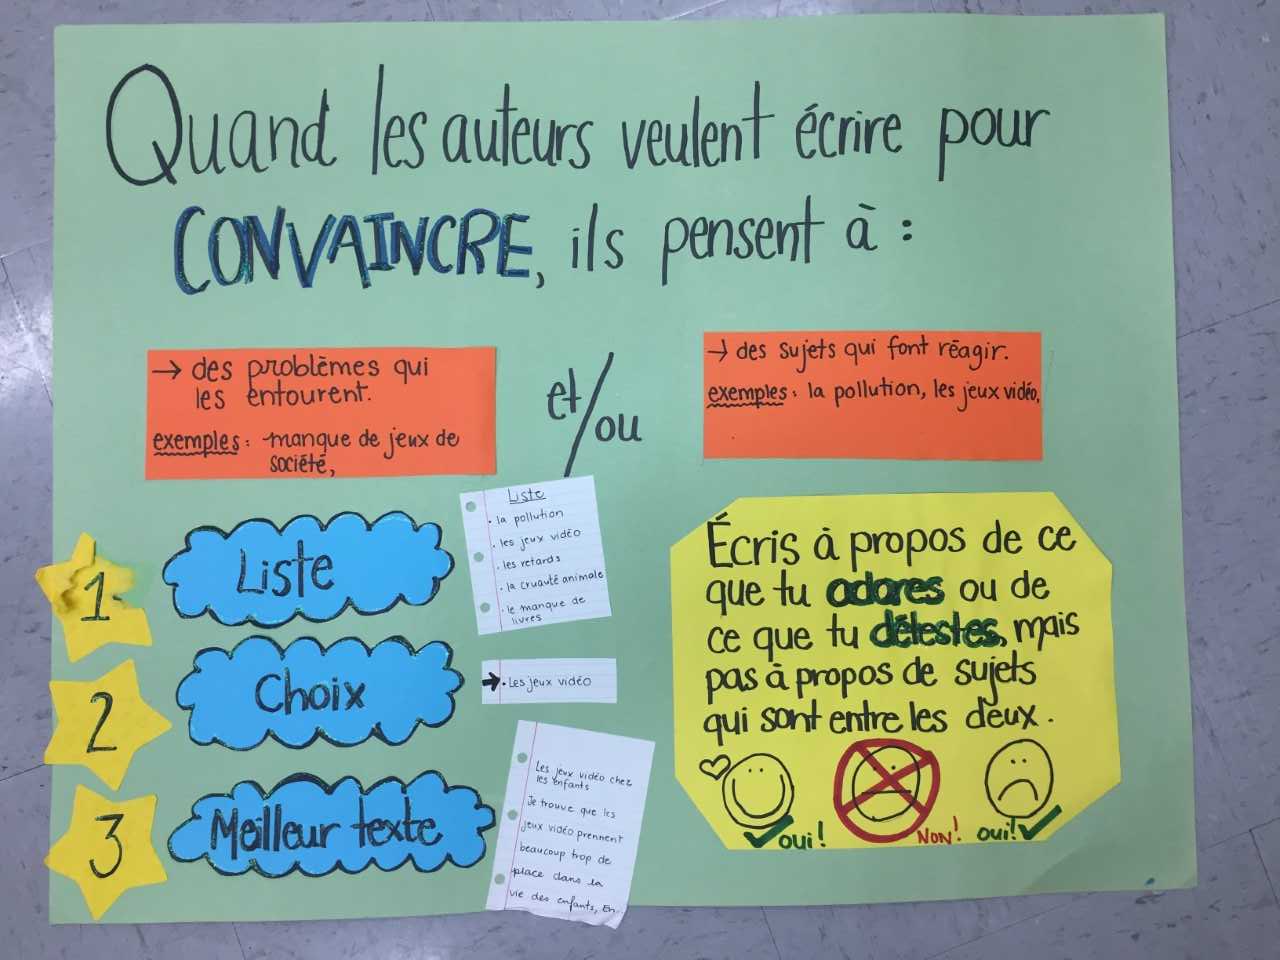 Quand les auteurs veulent écrire pour
CONVAINCRE, ils pensent à :
→ des problèmes qui
les entourent.
exemples : manque de jeux de
société,
et/ou
→ des sujets qui font réagir.
exemples : la pollution, les jeux vidéo,
1
Liste
Liste
• la pollution
• les jeux vidéo
• les retards
• la cruauté animale
• le manque de
livres
2
Choix
→ • Les jeux vidéo
3
Meilleur texte
Les jeux vidéo chez
les enfants
Je trouve que les
jeux vidéo prennent
beaucoup trop de
place dans la
vie des enfants, En...
Écris à propos de ce
que tu adores ou de
ce que tu détestes, mais
pas à propos de sujets
qui sont entre les deux.
oui!
NON!
oui!